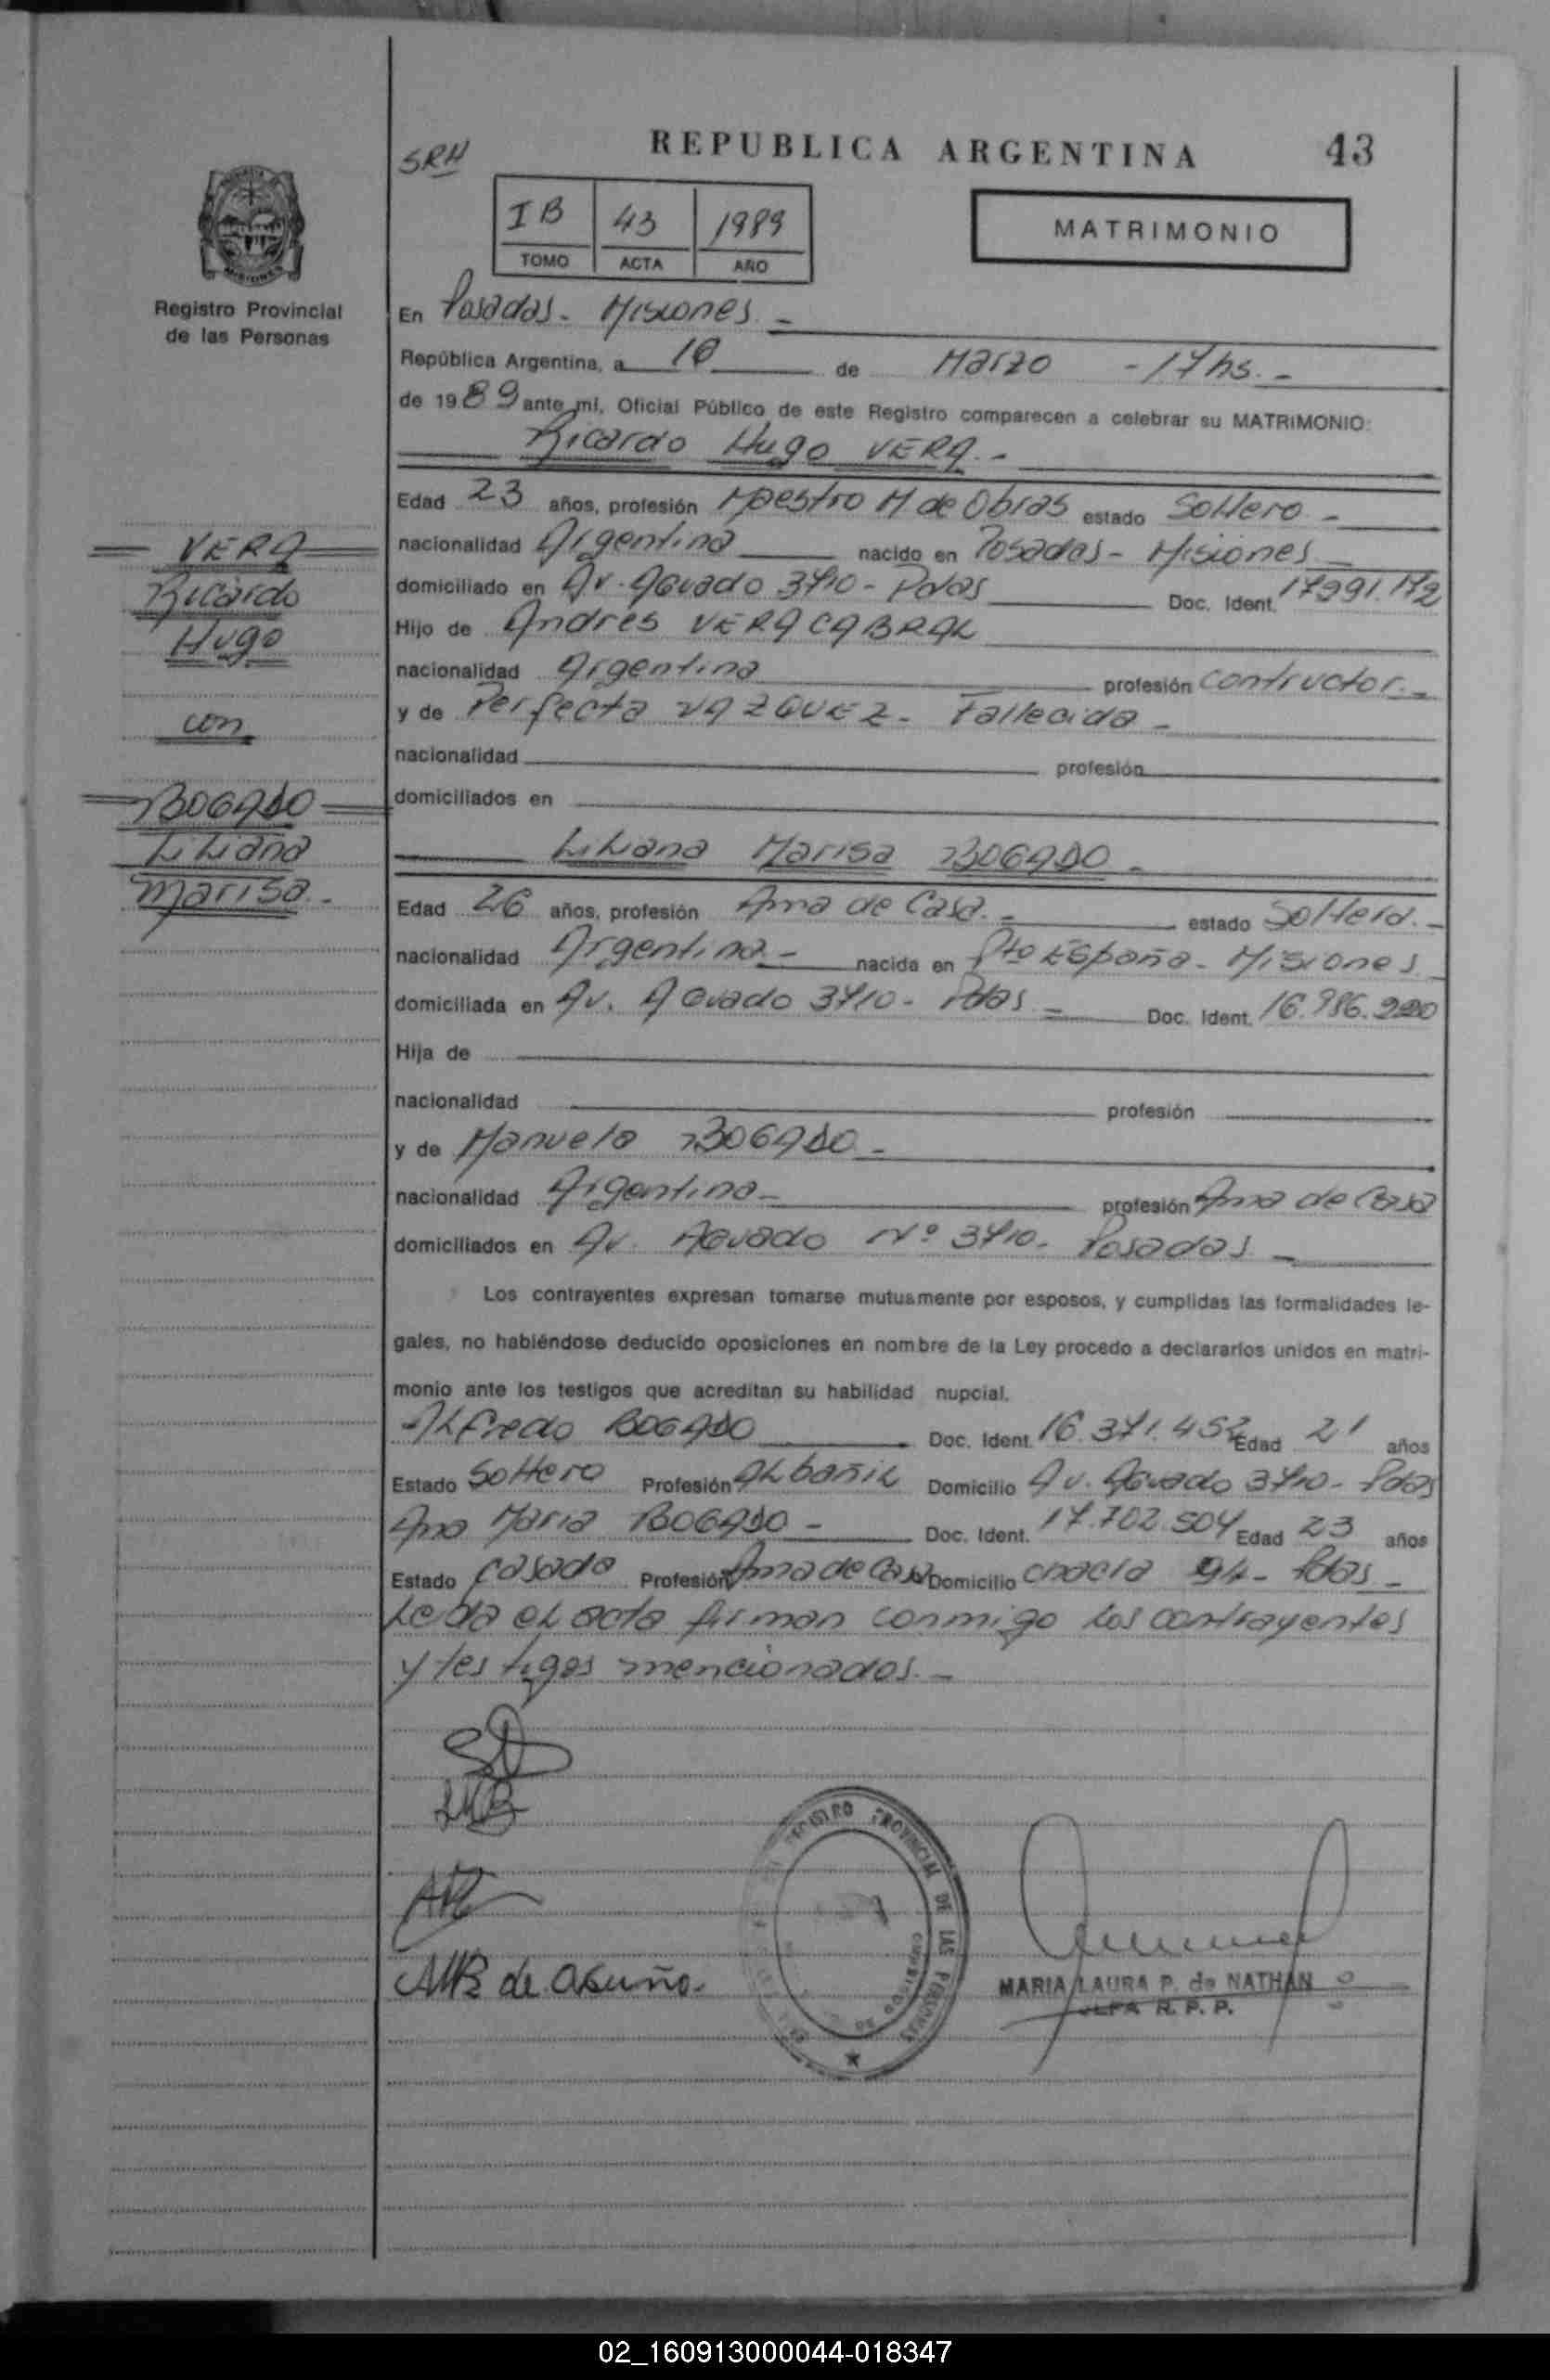 SRH
REPUBLICA ARGENTINA 43
IB 43 1989
TOMO ACTA AÑO
MATRIMONIO
Registro Provincial
de las Personas
En Posadas - Misiones -
República Argentina, a 10 de Marzo - 17 hs. -
de 1989 ante mi, Oficial Público de este Registro comparecen a celebrar su MATRIMONIO:
Ricardo Hugo VERA. -
Edad 23 años, profesión Maestro M de Obras estado Soltero -
nacionalidad Argentina nacido en Posadas - Misiones
domiciliado en Av. 3410 - Pdas Doc. Ident.
Hijo de Andres VERA CABRAL
nacionalidad Argentina profesión contructor. -
y de Perfecta VAZQUEZ - Fallecida -
nacionalidad profesión
domiciliados en
Liliana Marisa BOGADO -
Edad 26 años, profesión Ama de Casa. - estado Soltera. -
nacionalidad Argentina - nacida en Pto España - Misiones
domiciliada en Av. 3410 - Pdas - Doc. Ident. 16.986.
Hija de
nacionalidad profesión
y de Manuela BOGADO -
nacionalidad Argentina - profesión Ama de Casa
domiciliados en Av. Nº 3410 - Posadas -
Los contrayentes expresan tomarse mutuamente por esposos, y cumplidas las formalidades le-
gales, no habiéndose deducido oposiciones en nombre de la Ley procedo a declararlos unidos en matri-
monio ante los testigos que acreditan su habilidad nupcial.
Alfredo BOGADO Doc. Ident. 16.371.452 Edad 21 años
Estado Soltero Profesión Albañil Domicilio Av. 3410 - Pdas
Ana Maria BOGADO - Doc. Ident. 17.702.504 Edad 23 años
Estado casada Profesión Ama de Casa Domicilio chacra 94 - Pdas -
Leida el acta firman conmigo los contrayentes
y testigos mencionados. -
VERA
Ricardo
Hugo
con
BOGADO
Liliana
Marisa -
LMB
AMB de Acuña.
REGISTRO PROVINCIAL DE LAS PERSONAS
MARIA LAURA P. de NATHAN
JEFA R. P. P.
02_160913000044-018347